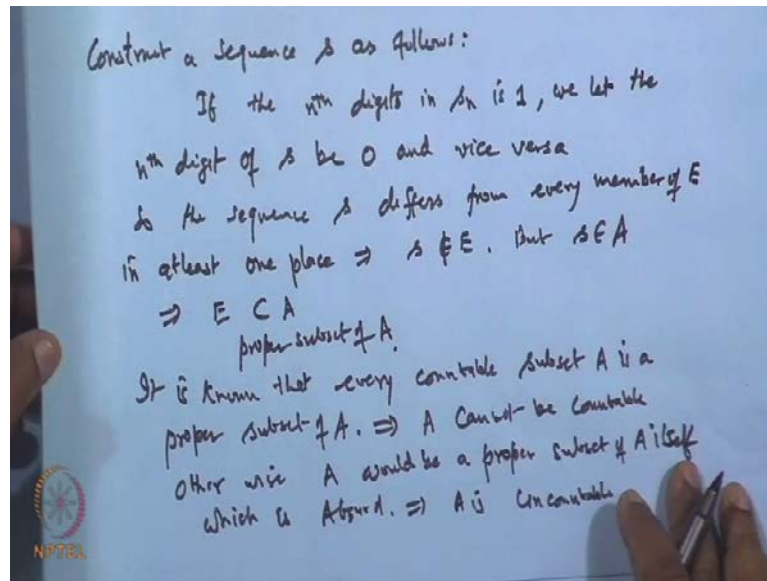 Construct a sequence s as follows:
If the nth digits in sn is 1, we let the
nth digit of s be 0 and vice versa
So the sequence s differs from every member of E
in atleast one place ⇒ s ∉ E. But s ∈ A
⇒ E ⊂ A
proper subset of A.
It is known that every countable subset A is a
proper subset of A. ⇒ A cannot be countable
other wise A would be a proper subset of A itself
which is Absurd. ⇒ A is Uncountable
NPTEL